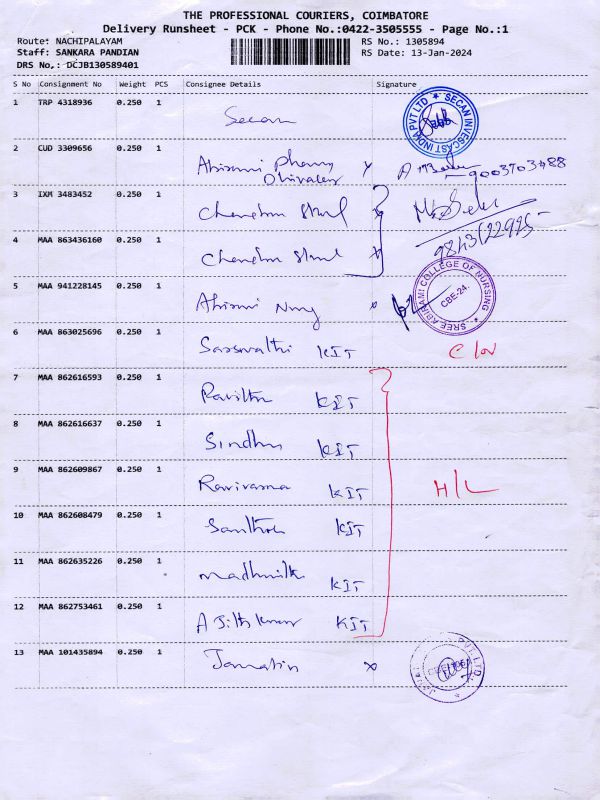 THE PROFESSIONAL COURIERS, COIMBATORE
Delivery Runsheet - PCK - Phone No.:0422-3505555 - Page No.:1
Route: NACHIPALAYAM RS No.: 1305894
Staff: SANKARA PANDIAN RS Date: 13-Jan-2024
DRS No,: DCJB130589401
S No Consignment No Weight PCS Consignee Details Signature
1 TRP 4318936 0.250 1 Secan SECAN INVESCAST INDIA PVT LTD
2 CUD 3309656 0.250 1 Abirami
3 IXM 3483452 0.250 1 Chendra Steel
4 MAA 863436160 0.250 1 Chendra Steel
5 MAA 941228145 0.250 1 Abirami SREE ABIRAMI COLLEGE OF NURSING CBE-24.
6 MAA 863025696 0.250 1 KIT
7 MAA 862616593 0.250 1 KIT
8 MAA 862616637 0.250 1 Sindhu KIT
9 MAA 862609867 0.250 1 KIT H/L
10 MAA 862608479 0.250 1 KIT
11 MAA 862635226 0.250 1 KIT
12 MAA 862753461 0.250 1 KIT
13 MAA 101435894 0.250 1